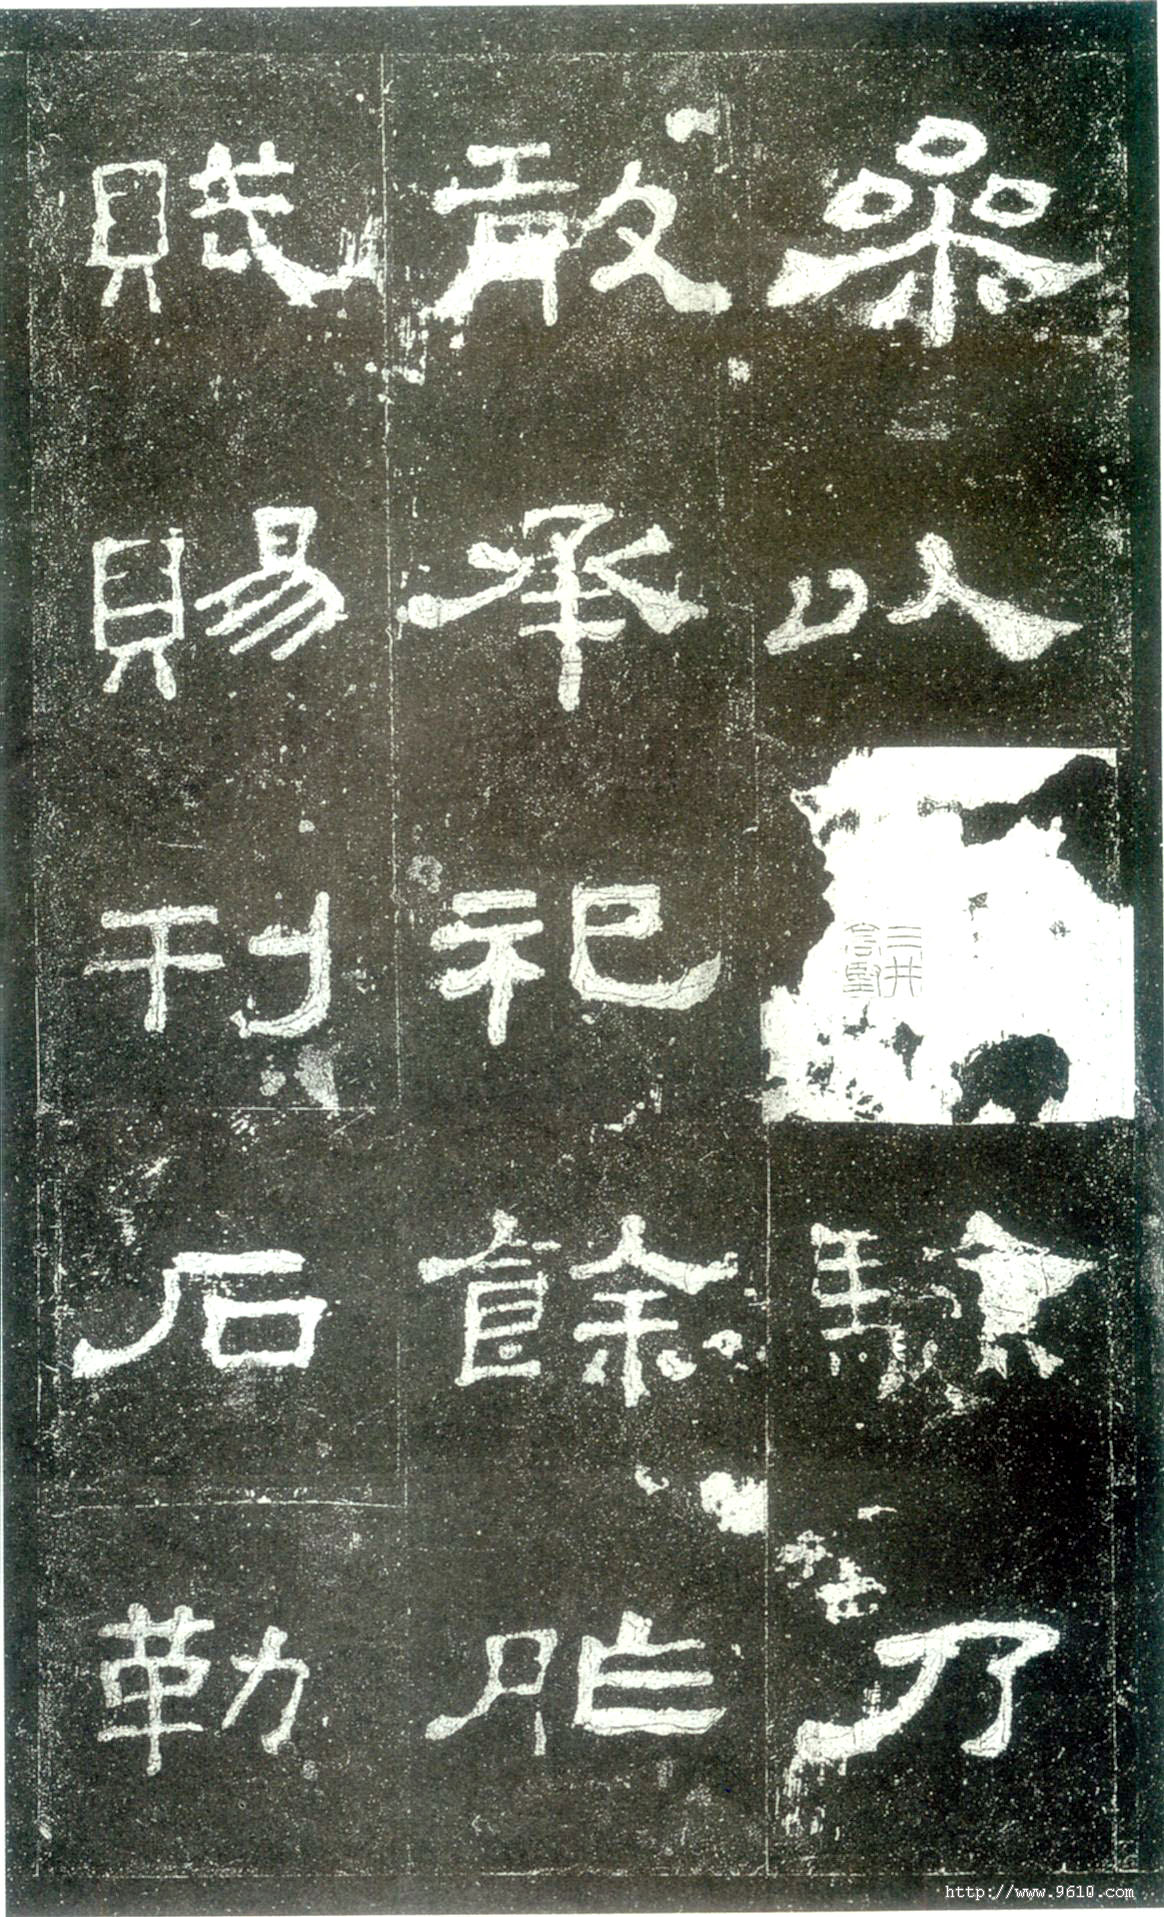 參以驗乃
敢承祀餘胙
賦賜刊石勒
http://www.9610.com